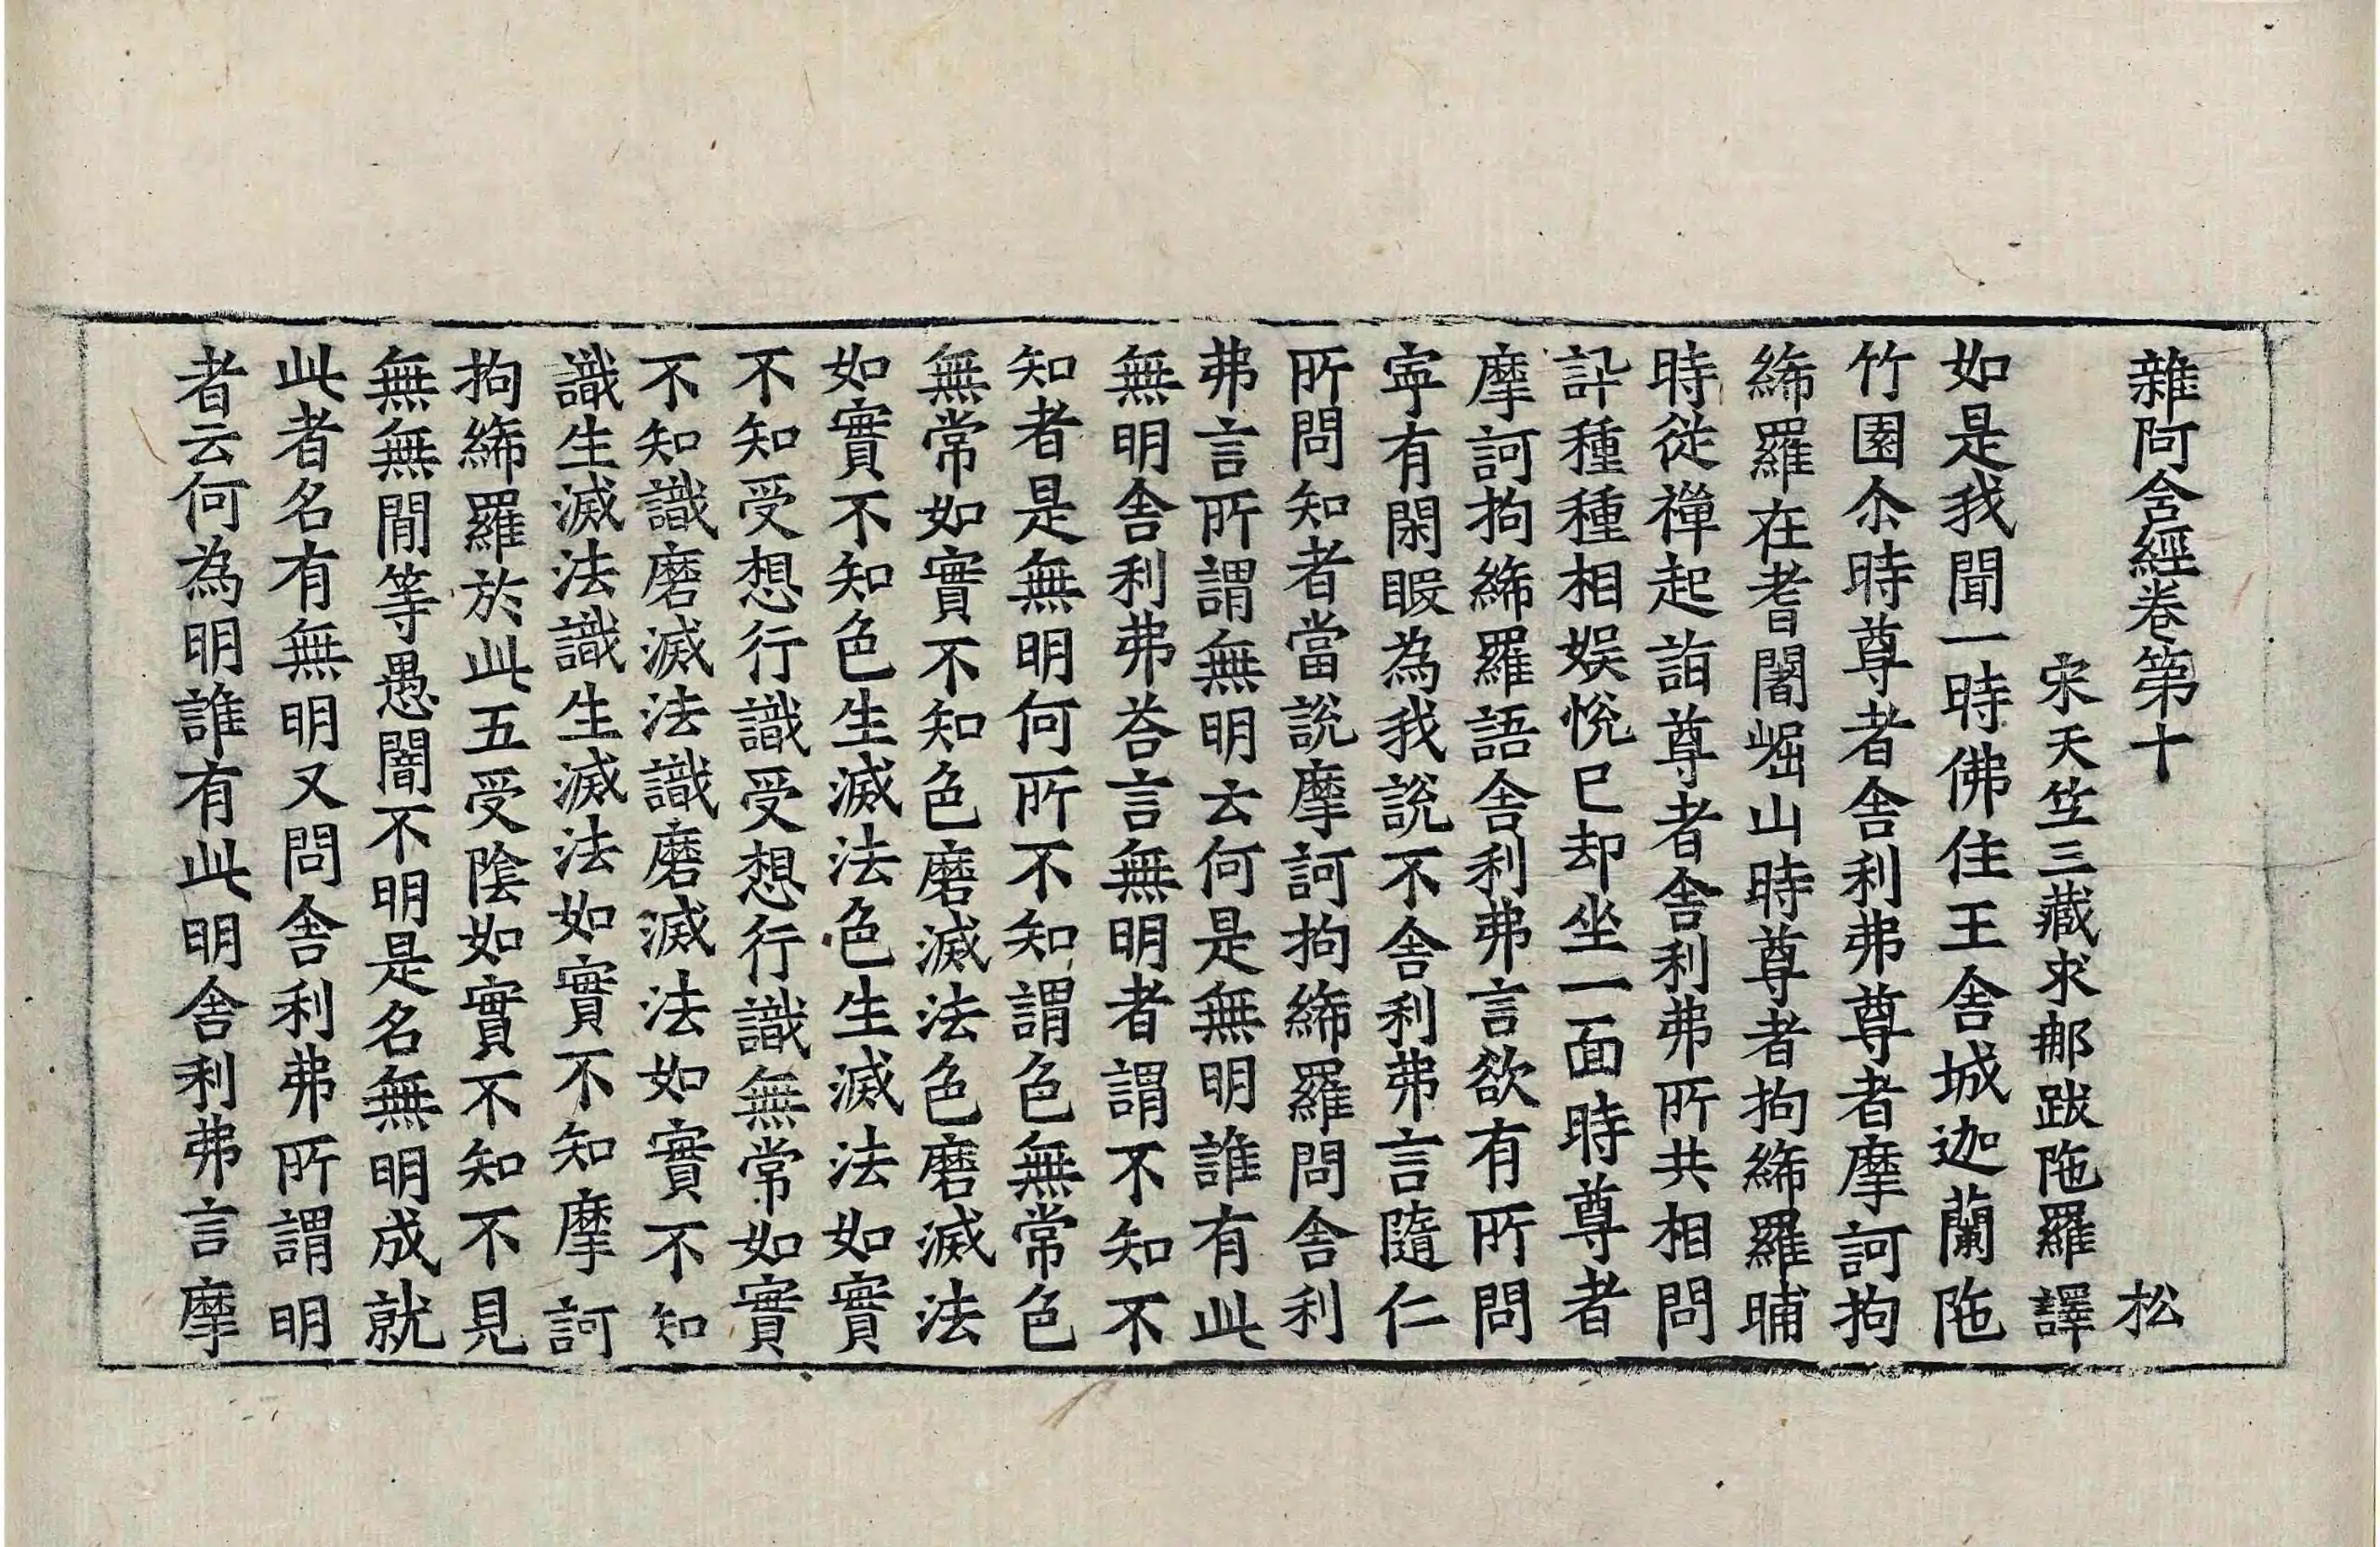 雜阿含經卷第十 松
宋天竺三藏求那跋陁羅譯
如是我聞一時佛住王舍城迦蘭陁
竹園尒時尊者舍利弗尊者摩訶拘
絺羅在耆闍崛山時尊者拘絺羅晡
時從禪起詣尊者舍利弗所共相問
訊種種相娱悅已却坐一面時尊者
摩訶拘絺羅語舍利弗言欲有所問
寜有閑暇為我說不舍利弗言隨仁
所問知者當說摩訶拘絺羅問舍利
弗言所謂無明云何是無明誰有此
無明舍利弗荅言無明者謂不知不
知者是無明何所不知謂色無常色
無常如實不知色磨滅法色磨滅法
如實不知色生滅法色生滅法如實
不知受想行識受想行識無常如實
不知識磨滅法識磨滅法如實不知
識生滅法識生滅法如實不知摩訶
拘絺羅於此五受陰如實不知不見
無無閒等愚闇不明是名無明成就
此者名有無明又問舍利弗所謂明
者云何為明誰有此明舍利弗言摩